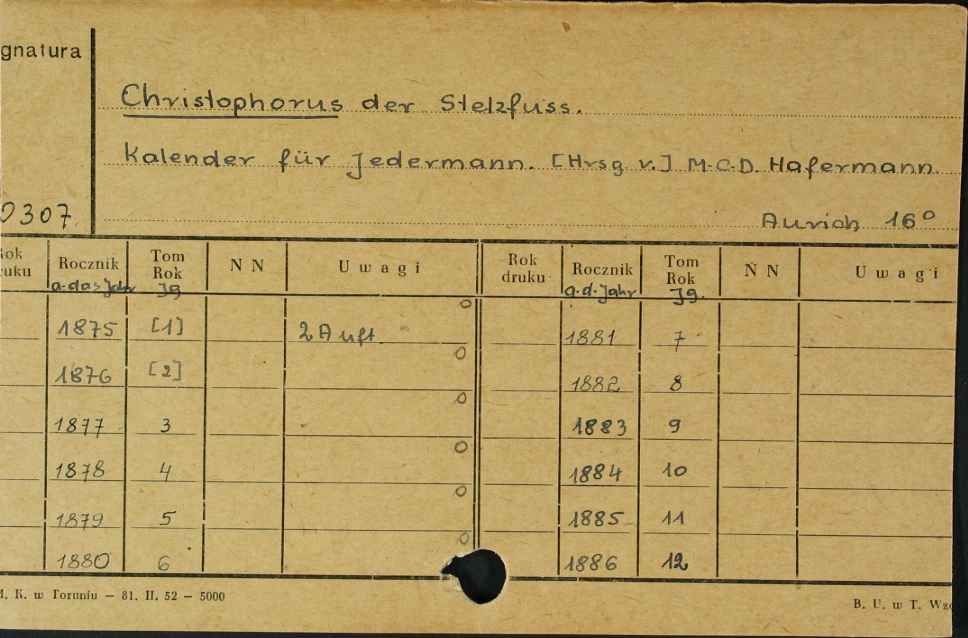 gnatura
Christophorus der Stelzfuss.
Kalender für Jedermann. [Hrsg v.] M.C.D. Hafermann.
0307.
Aurich 16°
Rok druku Rocznik Tom Rok N N Uwagi Rok druku Rocznik Tom Rok N N Uwagi
a. das Jahr Jg a.d. Jahr Jg.
1875 [1] 2 Aufl. 0 1881 7
1876 [2] 0 1882 8
1877 3 0 1883 9
1878 4 0 1884 10
1879 5 0 1885 11
1880 6 0 1886 12
M. K. w Toruniu — 81. II. 52 — 5000
B. U. w T. Wzo